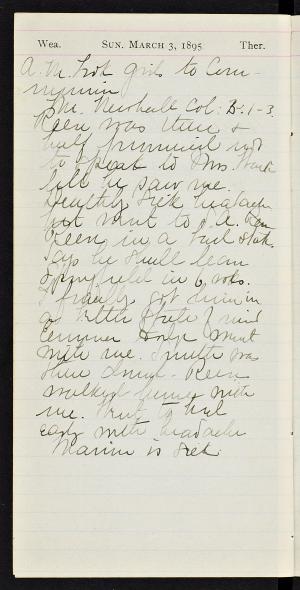 Wea. SUN. MARCH 3, 1895 Ther.
A.M. Took girls to Com-
munion
Mr. Col: 1-3.
Keen was there &
half promised not
to speak to Mrs.
till he saw me.
sick headache
but went to S.A.
Keen in a bad state.
Says he shall leave
Springfield in 6 wks.
I finally got him in
a better state of mind
went
with me. Smith was
there drunk. Keen
walked home with
me. Went to bed
early with headache
Marion is sick.